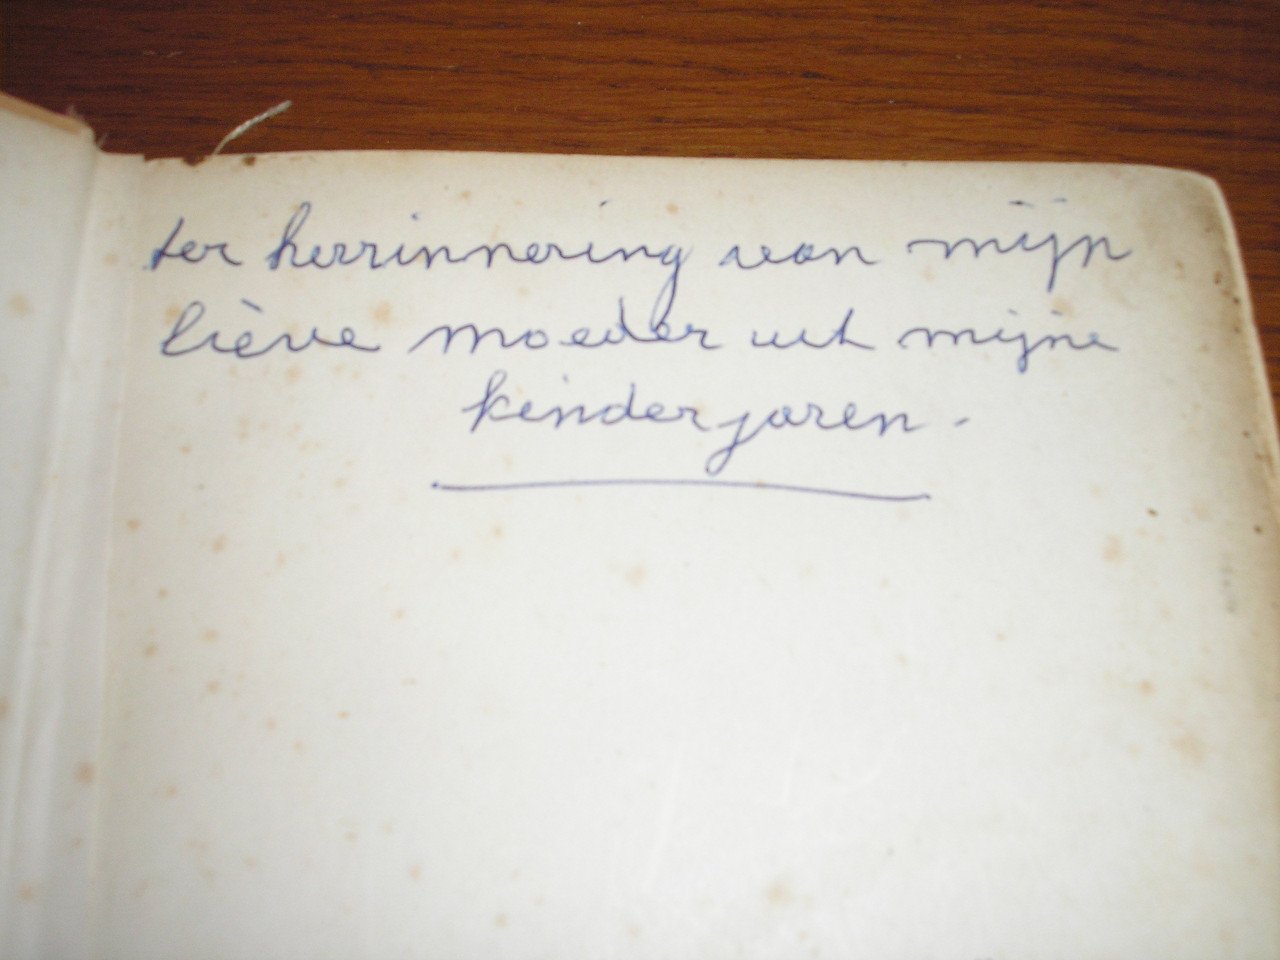 ter herrinnering van mijn
liève moeder uit mijne
kinderjaren -